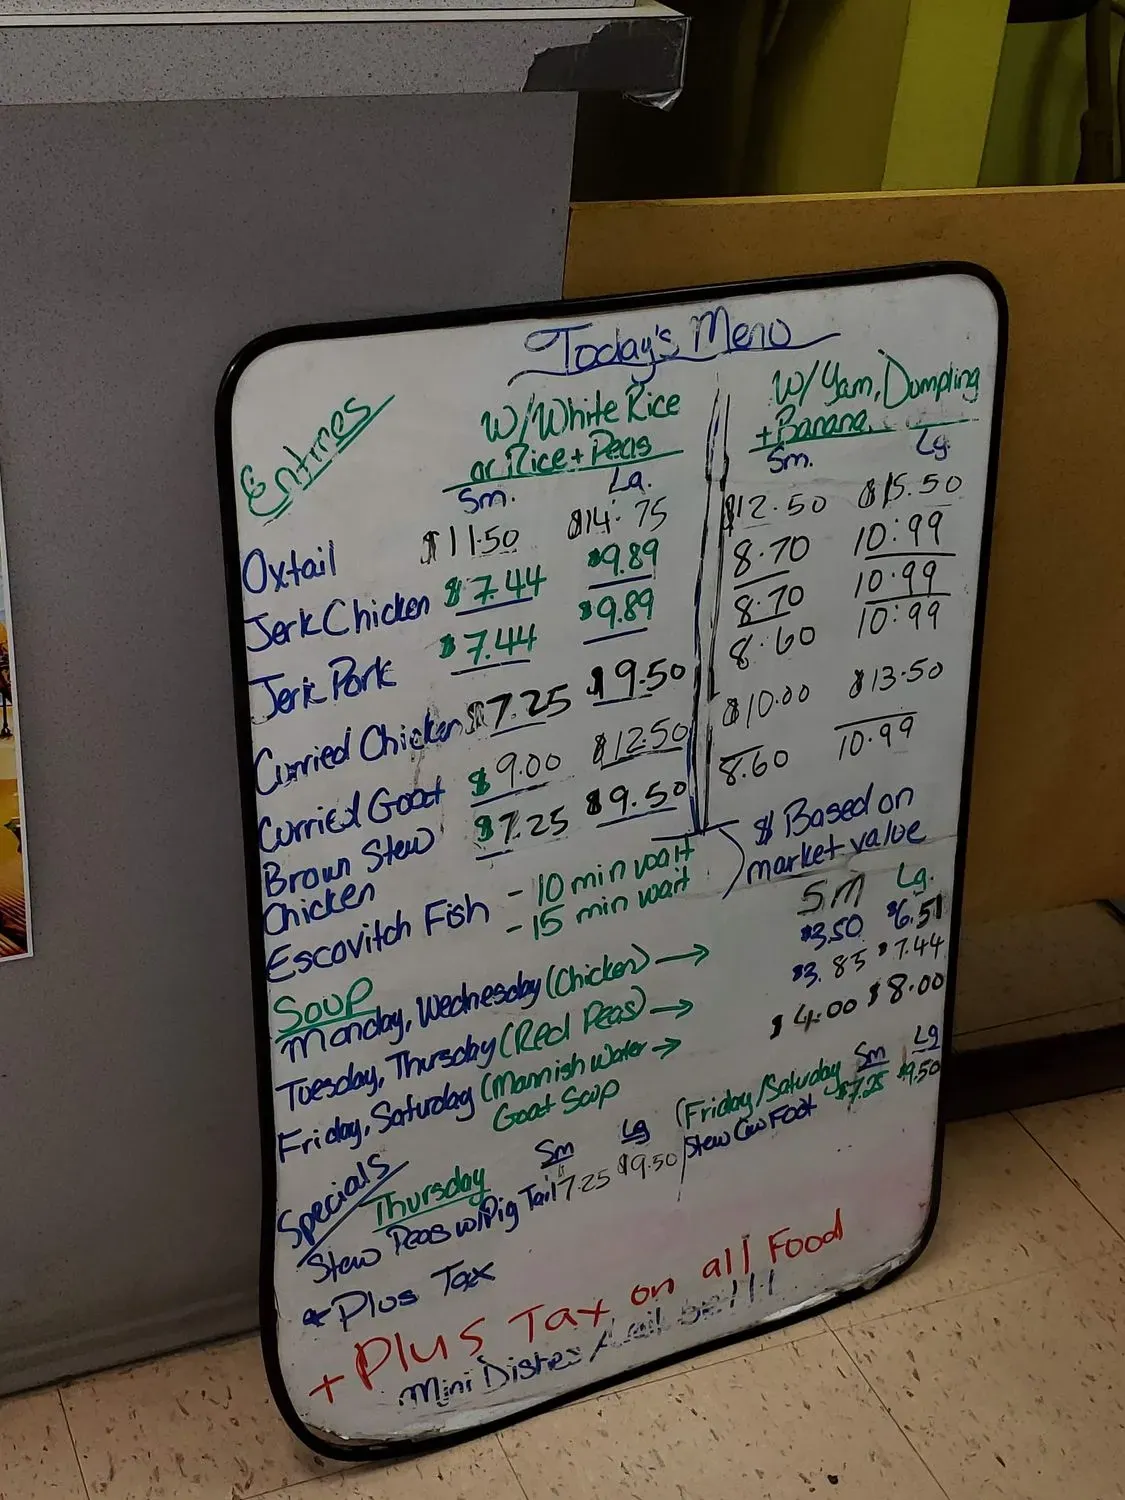 Today's Menu
Entrees
W/White Rice
or Rice + Peas
W/Yam, Dumpling
+ Banana
Sm. Lg. Sm. Lg.
Oxtail $11.50 $14.75 $12.50 $15.50
Jerk Chicken $7.44 $9.89 8.70 10.99
Jerk Pork $7.44 $9.89 8.70 10.99
Curried Chicken $7.25 $9.50 8.60 10.99
Curried Goat $9.00 $12.50 $10.00 $13.50
Brown Stew
Chicken $7.25 $9.50 8.60 10.99
Escovitch Fish - 10 min wait
- 15 min wait
$ Based on
market value
Soup Sm Lg.
Monday, Wednesday (Chicken) → $3.50 $6.51
Tuesday, Thursday (Red Peas) → $3.85 $7.44
Friday, Saturday (Mannish Water → $4.00 $8.00
Goat Soup
Specials
Thursday Sm Lg
Stew Peas w/Pig Tail 7.25 $9.50
(Friday/Saturday Sm Lg
Stew Cow Foot $7.25 $9.50
* Plus Tax
+ Plus Tax on all Food
Mini Dishes